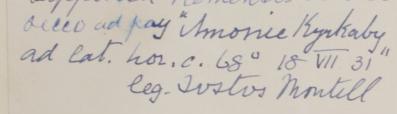 ad pag "Amonie Kyrkaby
ad lat. hor. c. 68° 18 VII 31"
leg. Justus Montell